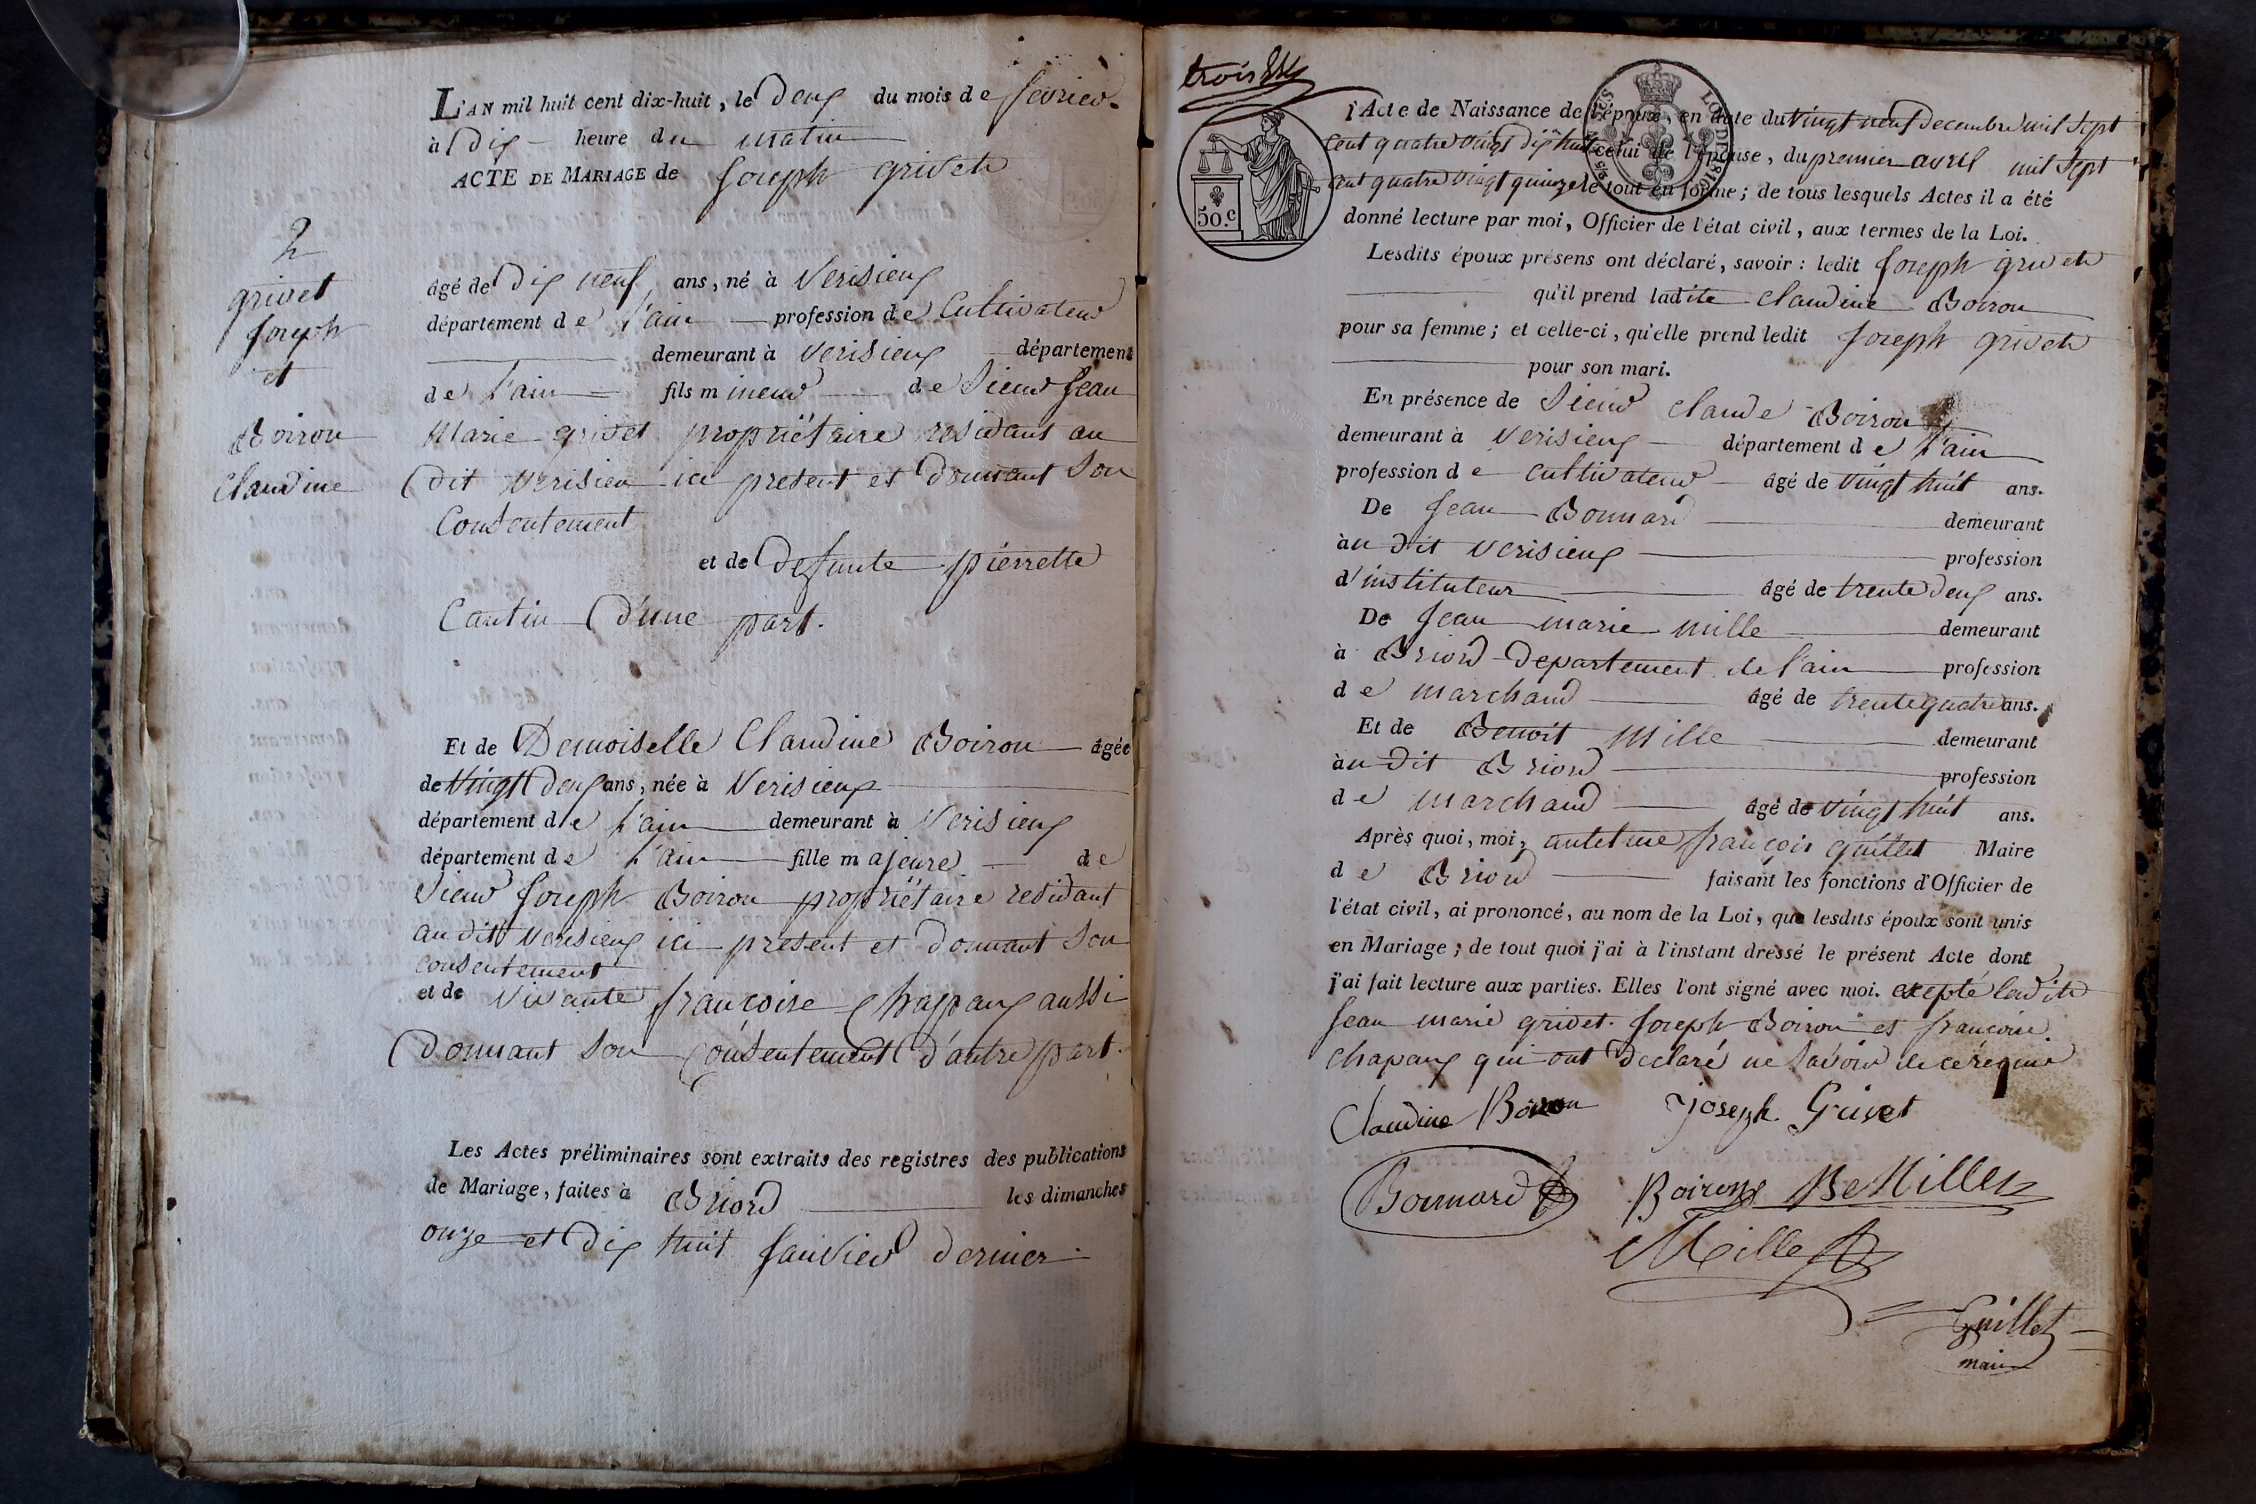 L'AN mil huit cent dix-huit, le Deux du mois de fevrier
à Dix heure du matin
ACTE DE MARIAGE de Joseph grivet
2
grivet
Joseph
et
Boiron
Claudine
âgé de Dix neuf ans, né à Verisieux
département de l'ain profession de Cultivateur
demeurant à Verisieux département
de l'ain fils mineur de Sieur Jean
Marie grivet propriétaire residant au
Dit Verisieu ici present et Donnant Son
Consentement
et de Defunte pierrette
Cantin D'une part.
Et de Demoiselle Claudine Boiron âgée
de Vingt Deux ans, née à Verisieux
département de l'ain demeurant à Verisieux
département de l'ain fille majeure de
Sieur Joseph Boiron propriétaire residant
au dit Verisieux ici present et Donnant Son
consentement
et de Vivante françoise Chappaux aussi
Donnant Son Consentement D'autre part.
Les Actes préliminaires sont extraits des registres des publications
de Mariage, faites à Briord les dimanches
onze et Dix huit Janvier dernier
trois
50.c
l'Acte de Naissance de l'époux, en date du Vingt neuf Decembre mil Sept
Cent quatre Vingt Dix huit celui de l'épouse, du premier avril mil Sept
Cent quatre Vingt quinze le tout en forme; de tous lesquels Actes il a été
donné lecture par moi, Officier de l'état civil, aux termes de la Loi.
Lesdits époux présens ont déclaré, savoir: ledit Joseph grivet
qu'il prend ladite Claudine Boiron
pour sa femme; et celle-ci, qu'elle prend ledit Joseph grivet
pour son mari.
En présence de Sieur Claude Boiron
demeurant à Verisieux département de l'ain
profession de cultivateur âgé de Vingt huit ans.
De Jean Bonnard demeurant
àu Dit Verisieux profession
d'instituteur âgé de trente Deux ans.
De Jean marie mille demeurant
à Briord Departement de l'ain profession
de marchand âgé de trente quatre ans.
Et de Benoit Mille demeurant
àu Dit Briord profession
de marchand âgé de Vingt huit ans.
Après quoi, moi, antelme françois guillet Maire
de Briord faisant les fonctions d'Officier de
l'état civil, ai prononcé, au nom de la Loi, que lesdits époux sont unis
en Mariage; de tout quoi j'ai à l'instant dressé le présent Acte dont
j'ai fait lecture aux parties. Elles l'ont signé avec moi. exepté
Jean marie grivet. Joseph Boiron et françoise
Chapaux qui ont Declaré ne Savoir de ce requis
Claudine Boiron Joseph Grivet
Bonnard Boiron Be Mille
Mille
Guillet
maire